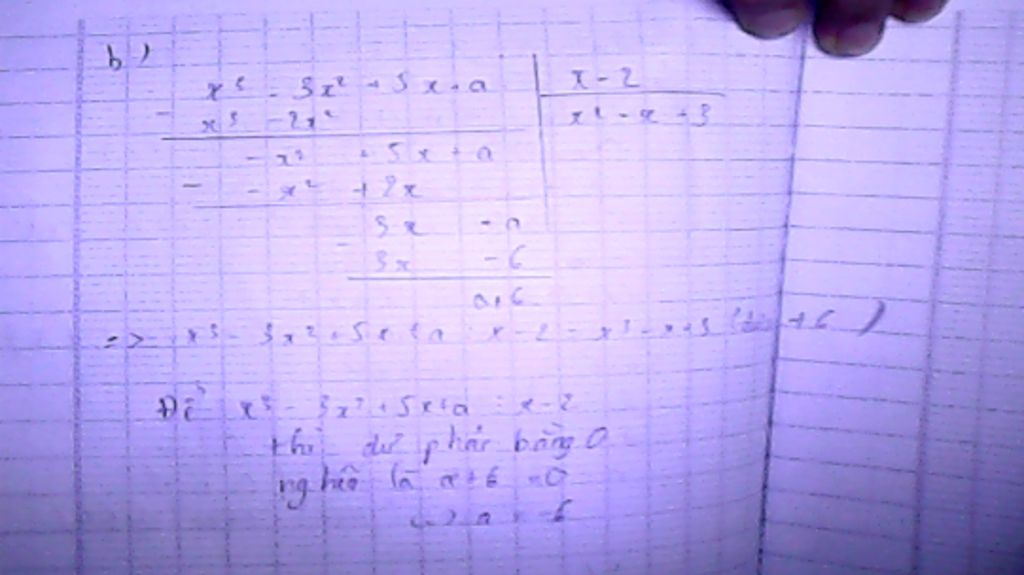 b)
x³ - 3x² + 5x + a | x - 2
- x³ - 2x² | x² - x + 3
- x² + 5x + a
- - x² + 2x
3x + a
- 3x - 6
a + 6
=> x³ - 3x² + 5x + a : x - 2 = x² - x + 3 (dư + 6)
Để x³ - 3x² + 5x + a : x - 2
thì dư phải bằng 0
nghĩa là a + 6 = 0
=> a = -6